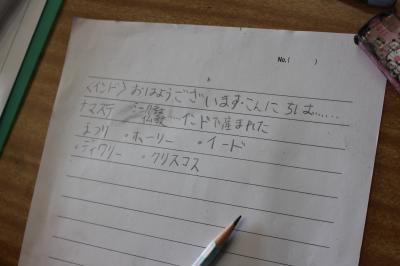 No.(    )
〈インド〉おはようございます・こんにちは……
ナマステ 仏教…インドで産まれた
まつり ・ホーリー ・イード
・ディワリー ・クリスマス